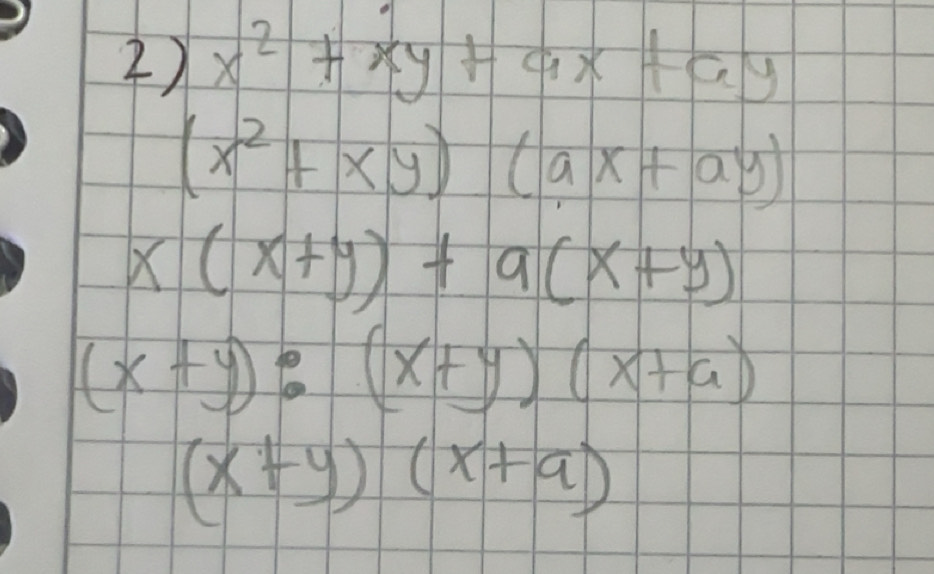 2) x² + xy + ax + ay
(x² + xy) (ax + ay)
x (x+y) + a(x+y)
(x + y): (x+y) (x+a)
(x+y) (x+a)